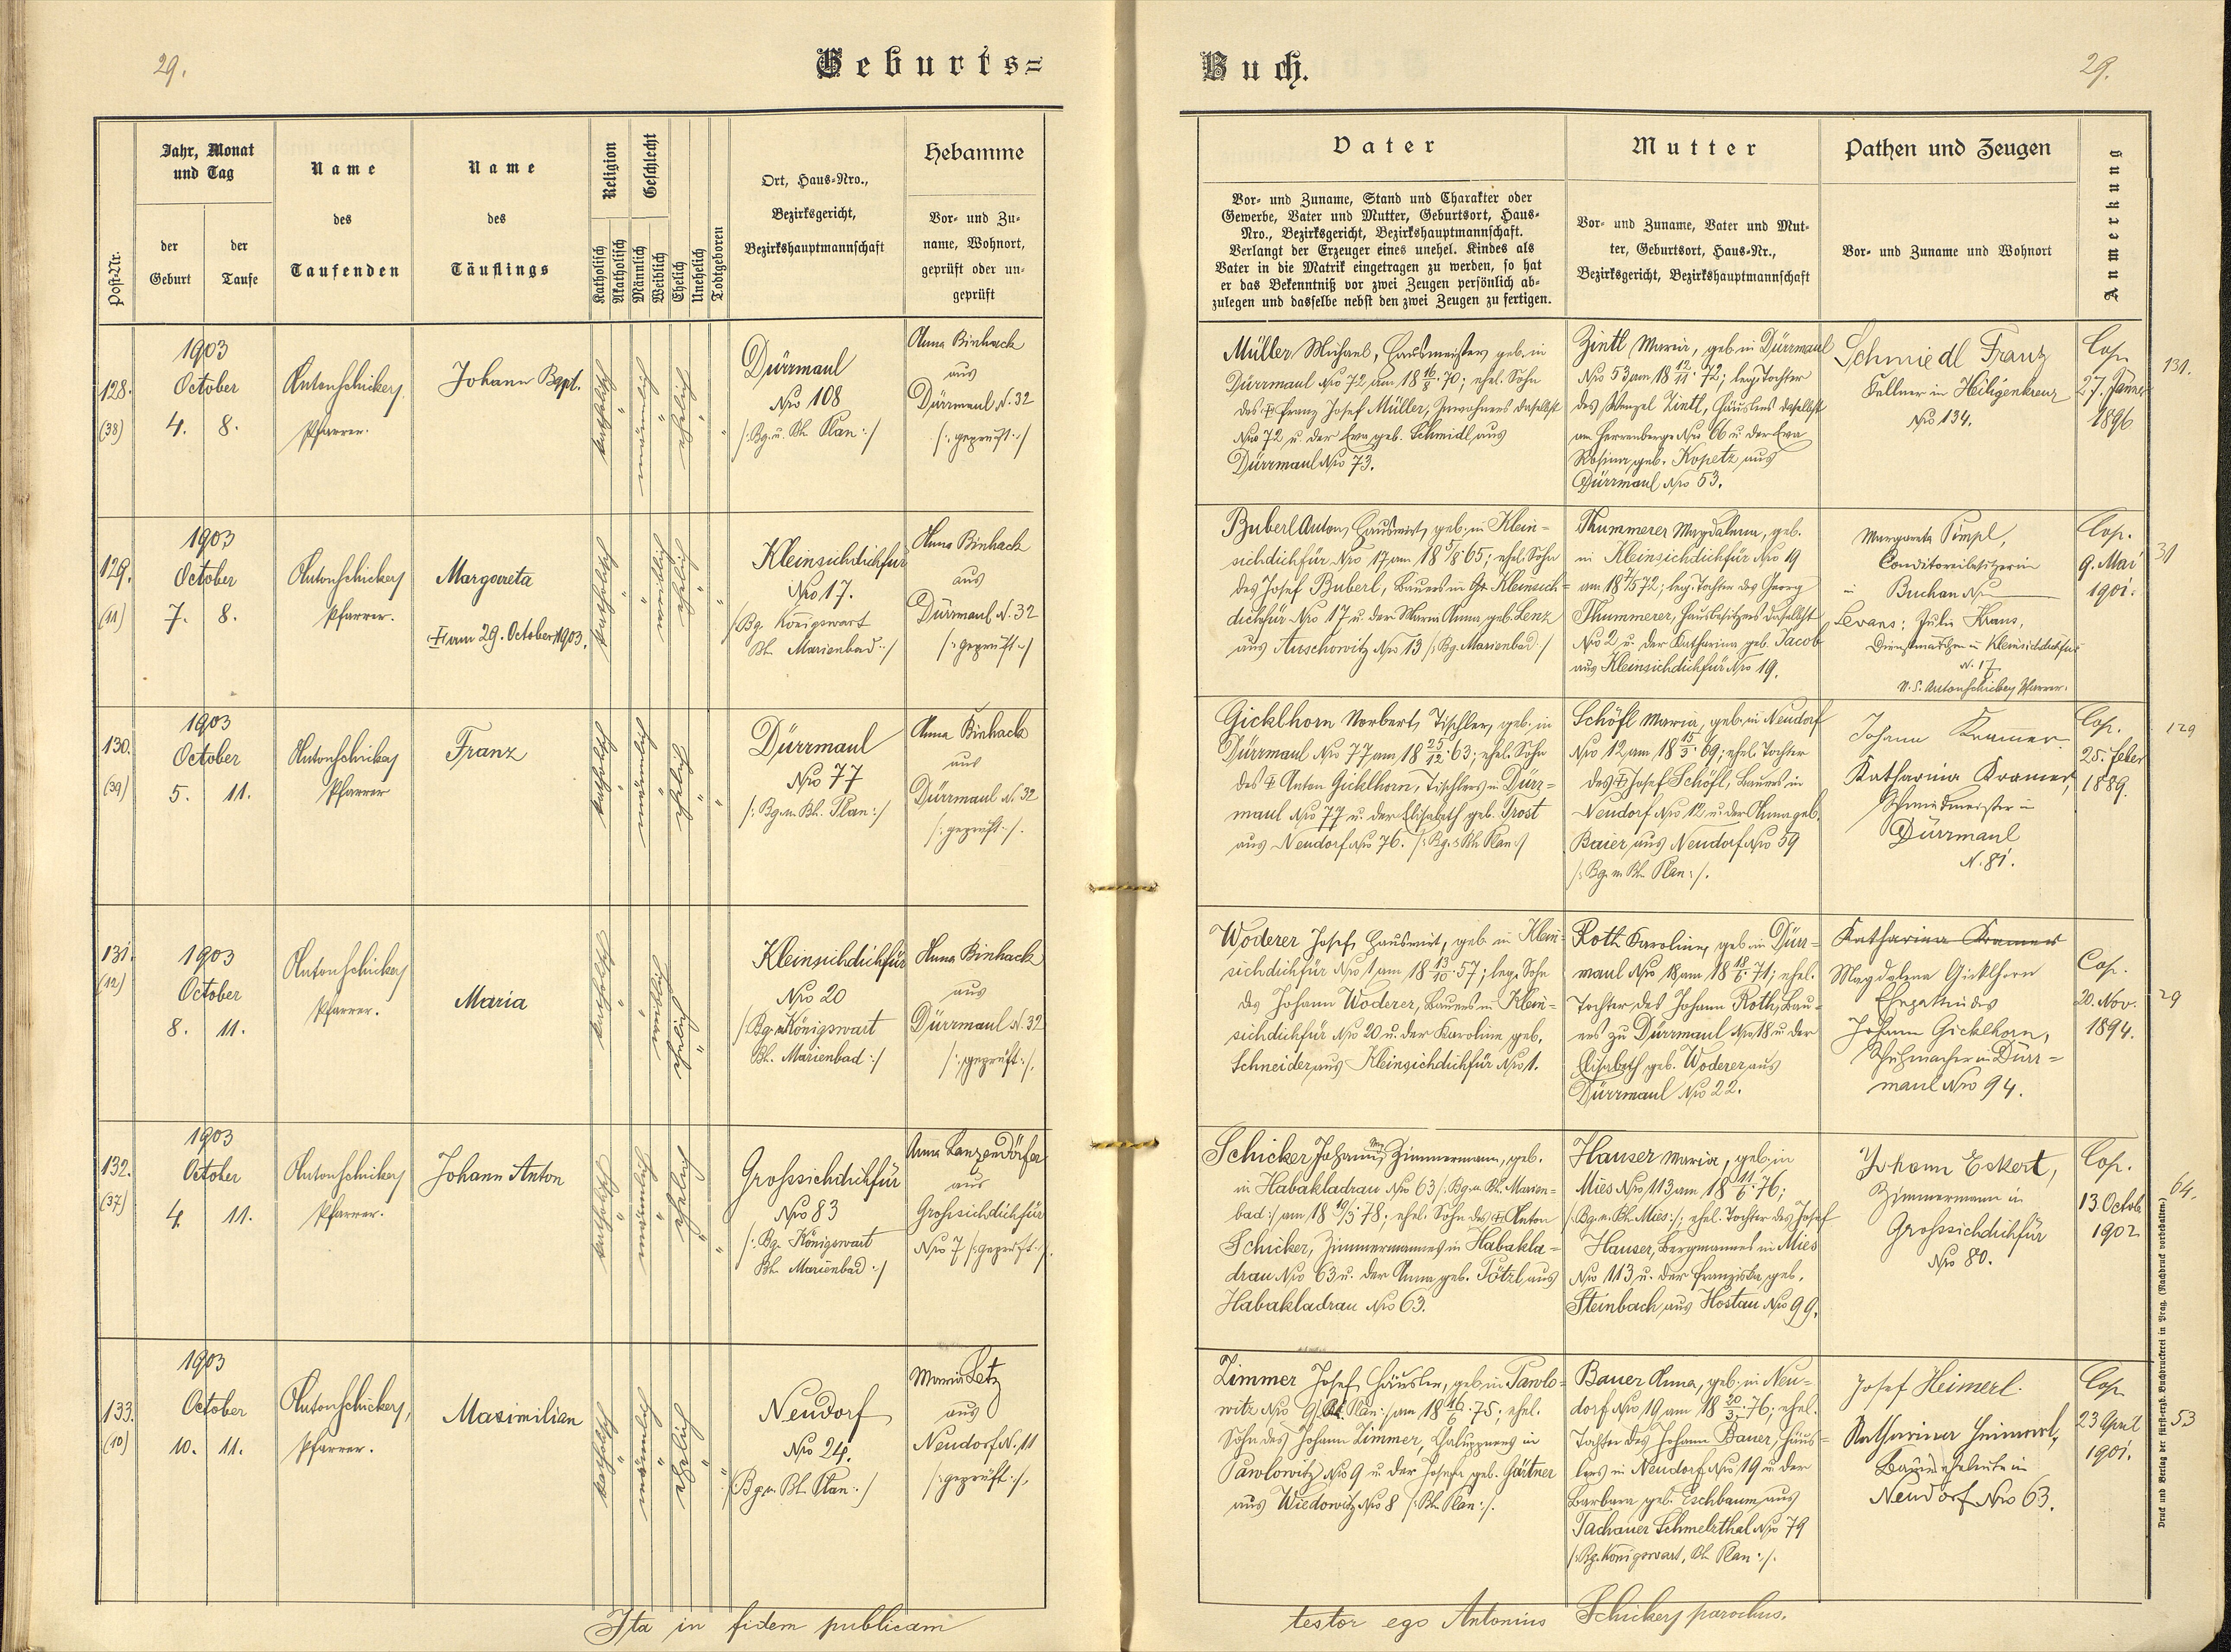 29.
Geburts=
Post-Nr.
Jahr, Monat
und Tag
der
Geburt
der
Taufe
Name
des
Taufenden
Name
des
Täuflings
Religion
Katholisch
Akatholisch
Geschlecht
Männlich
Weiblich
Ehelich
Unehelich
Todtgeboren
Ort, Haus-Nro.,
Bezirksgericht,
Bezirkshauptmannschaft
Hebamme
Vor- und Zu-
name, Wohnort,
geprüft oder un-
geprüft
128.
(38)
1903
October
4. 8.
Anton Schickers
Pfarrer.
Johann Bapt.
katholisch "
männlich "
ehelich "
"
Dürrmaul
Nro 108
/: Bg. u. Bh. Plan :/
Anna Binhack
aus
Dürrmaul N. 32
/: geprüft :/
129.
(11)
1903
October
7. 8.
Anton Schickers
Pfarrer.
Margareta
† am 29. October 1903.
katholisch "
" weiblich
ehelich "
"
Kleinsichdichfür
Nro 17.
/: Bg. Königswart
Bh. Marienbad :/
Anna Binhack
aus
Dürrmaul N. 32
/: geprüft :/
130.
(39)
1903
October
5. 11.
Anton Schickers
Pfarrer
Franz
katholisch "
männlich "
ehelich "
"
Dürrmaul
Nro 77
/: Bg. u. Bh. Plan :/
Anna Binhack
aus
Dürrmaul N. 32
/: geprüft :/.
131.
(12)
1903
October
8. 11.
Anton Schickers
Pfarrer.
Maria
katholisch "
" weiblich
ehelich "
Kleinsichdichfür
Nro 20
/: Bg. Königswart
Bh. Marienbad :/
Anna Binhack
aus
Dürrmaul N. 32
/: geprüft :/.
132.
(37)
1903
October
4. 11.
Anton Schickers
Pfarrer.
Johann Anton
katholisch "
männlich "
ehelich "
"
Grossichdichfür
Nro 83
/: Bg. Königswart
Bh. Marienbad :/
Anna Lanzendörfer
aus
Grossichdichfür
Nro 7 /: geprüft :/.
133.
(10)
1903
October
10. 11.
Anton Schickers,
Pfarrer.
Maximilian
katholisch "
männlich "
ehelich "
"
Neudorf
Nro 24.
/: Bg. u. Bh. Plan :/
Maria Letz
aus
Neudorf N. 11
/: geprüft :/.
Ita in fidem publicam
Buch.
29.
Vater
Vor- und Zuname, Stand und Charakter oder
Gewerbe, Vater und Mutter, Geburtsort, Haus-
Nro., Bezirksgericht, Bezirkshauptmannschaft.
Verlangt der Erzeuger eines unehel. Kindes als
Vater in die Matrik eingetragen zu werden, so hat
er das Bekenntniß vor zwei Zeugen persönlich ab-
zulegen und dasselbe nebst den zwei Zeugen zu fertigen.
Mutter
Vor- und Zuname, Vater und Mut-
ter, Geburtsort, Haus-Nr.,
Bezirksgericht, Bezirkshauptmannschaft
Pathen und Zeugen
Vor- und Zuname und Wohnort
Anmerkung
Müller Michael, Hausmeister, geb. in
Dürrmaul Nro 72 am 18 16/8 70; ehel. Sohn
des † Franz Josef Müller, Inwohners daselbst
Nro 72 u. der Eva geb. Schmidl aus
Dürrmaul Nro 73.
Zintl Maria, geb. in Dürrmaul
Nro 53 am 18 12/11 72; leg. Tochter
des Wenzel Zintl, Häuslers daselbst
am Herrenberge Nro 66 u. der Eva
Rosina, geb. Kopetz, aus
Dürrmaul Nro 53.
Schmiedl Franz
Kellner in Heiligenkreuz
Nro 134.
Cop.
27. Jänner
1896
131.
Buberl Anton, Hauswirt, geb. in Klein-
sichdichfür Nro 17 am 18 5/8 65; ehel. Sohn
des Josef Buberl, Bauers in Kleinsich=
dichfür Nro 17 u. der Maria Anna, geb. Lenz
aus Auschowitz Nro 13 /: Bg. Marienbad :/
Thummerer Magdalena, geb.
in Kleinsichdichfür Nro 19
am 18 7/5 72; leg. Tochter des Georg
Thummerer, Hausbesitzers daselbst
Nro 2 u. der Katharina geb. Jacob
aus Kleinsichdichfür Nro 19.
Margareta Pimpl,
Conditoreibesitzerin
in Buchau Nro
Levans: Julie Kraus,
Dienstmädchen in Kleinsichdichfür
N. 17
N. S. Anton Schickers Pfarrer.
Cop.
9. Mai
1901.
31
Gicklhorn Norbert, Tischler, geb. in
Dürrmaul Nro 77 am 18 25/12 63; ehel. Sohn
des † Anton Gicklhorn, Tischlers in Dürr=
maul Nro 77 u. der Elisabeth geb. Trost
aus Neudorf Nro 76. /: Bg. u. Bh. Plan :/
Schöfl Maria, geb. in Neudorf
Nro 12 am 18 15/5 69; ehel. Tochter
des † Josef Schöfl, Bauers in
Neudorf Nro 12 u. der Anna geb.
Baier, aus Neudorf Nro 59
/: Bg. u. Bh. Plan :/.
Johann Kramer.
Katharina Kramer,
Schmiedmeister in
Dürrmaul
N. 81.
Cop.
25. Feber
1889.
129
Woderer Josef, Hauswirt, geb. in Klein-
sichdichfür Nro 1 am 18 13/10 57; leg. Sohn
des Johann Woderer, Bauers in Klein=
sichdichfür Nro 20 u. der Karoline geb.
Schneider, aus Kleinsichdichfür Nro 1.
Roth Karoline, geb. in Dürr=
maul Nro 18 am 18 18/6 71; ehel.
Tochter des Johann Roth, Bau-
ers zu Dürrmaul Nro 18 u. der
Elisabeth geb. Woderer aus
Dürrmaul Nro 22.
Katharina Kramer
Magdalena Gicklhorn
Ehegattin des
Johann Gicklhorn,
Schuhmacher in Dürr=
maul Nro 94.
Cop.
20. Nov.
1894.
29
Schicker Johann, Zimmermann, geb.
in Habakladrau Nro 63 /: Bg. u. Bh. Marien=
bad :/ am 18 19/3 78; ehel. Sohn des † Anton
Schicker, Zimmermannes in Habakla=
drau Nro 63 u. der Anna geb. Tötzl aus
Habakladrau Nro 63.
Hauser Maria, geb. in
Mies Nro 113 am 18 11/6 76;
/: Bg. u. Bh. Mies :/; ehel. Tochter des Josef
Hauser, Bergmannes in Mies
Nro 113 u. der Franziska geb.
Steinbach, aus Hostau Nro 99.
Johann Eckert,
Zimmermann in
Grosssichdichfür
Nro 80.
Cop.
13. Octob.
1902
64.
Zimmer Josef, Häusler, geb. in Pawlo=
witz Nro 9 /: Bh. Plan :/ am 18 16/6 75; ehel.
Sohn des Johann Zimmer, Chaluppners in
Pawlowitz Nro 9 u. der Josefa geb. Gärtner
aus Wiedowitz Nro 8 /: Bh. Plan :/.
Bauer Anna, geb. in Neu=
dorf Nro 19 am 18 20/3 76; ehel.
Tochter des Johann Bauer, Häus=
lers in Neudorf Nro 19 u. der
Barbara geb. Eschbaum, aus
Tachauer Schmelzthal Nro 79
/: Bg. Königswart, Bh. Plan :/.
Josef Heimerl.
Katharina Heimerl,
Bauerseheleute in
Neudorf Nro 63.
Cop.
23 April
1901.
53
testor ego Antonius Schickers parochus.
Druck und Verlag der fürsterzb. Buchdruckerei in Prag. (Nachdruck vorbehalten.)